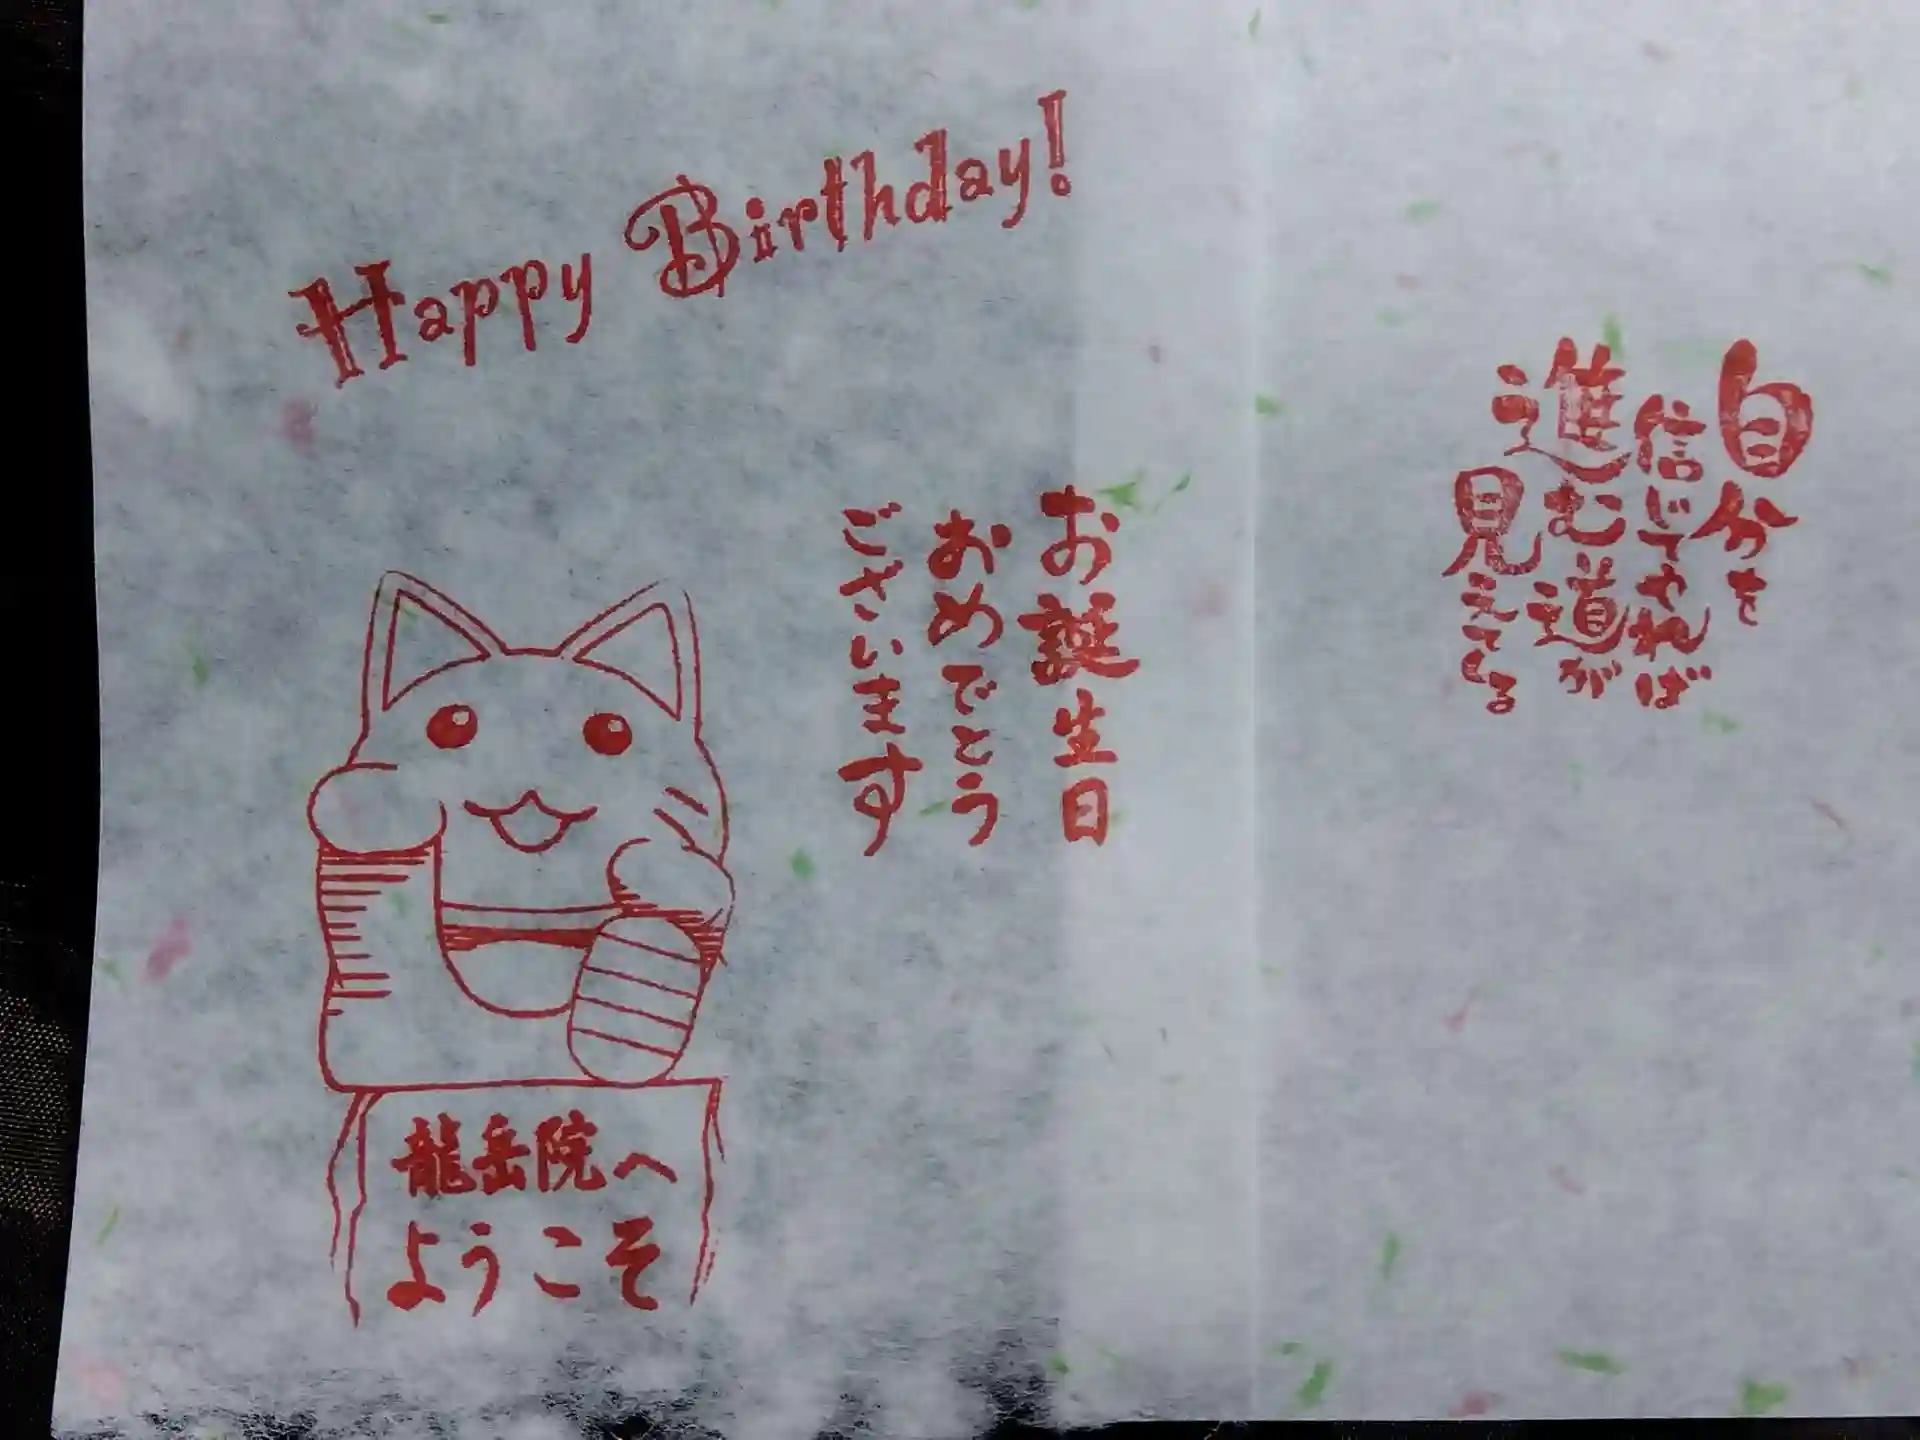 Happy Birthday!
自分を
信じてやれば
進む道が
見えてくる
お誕生日
おめでとう
ございます
龍岳院へ
ようこそ